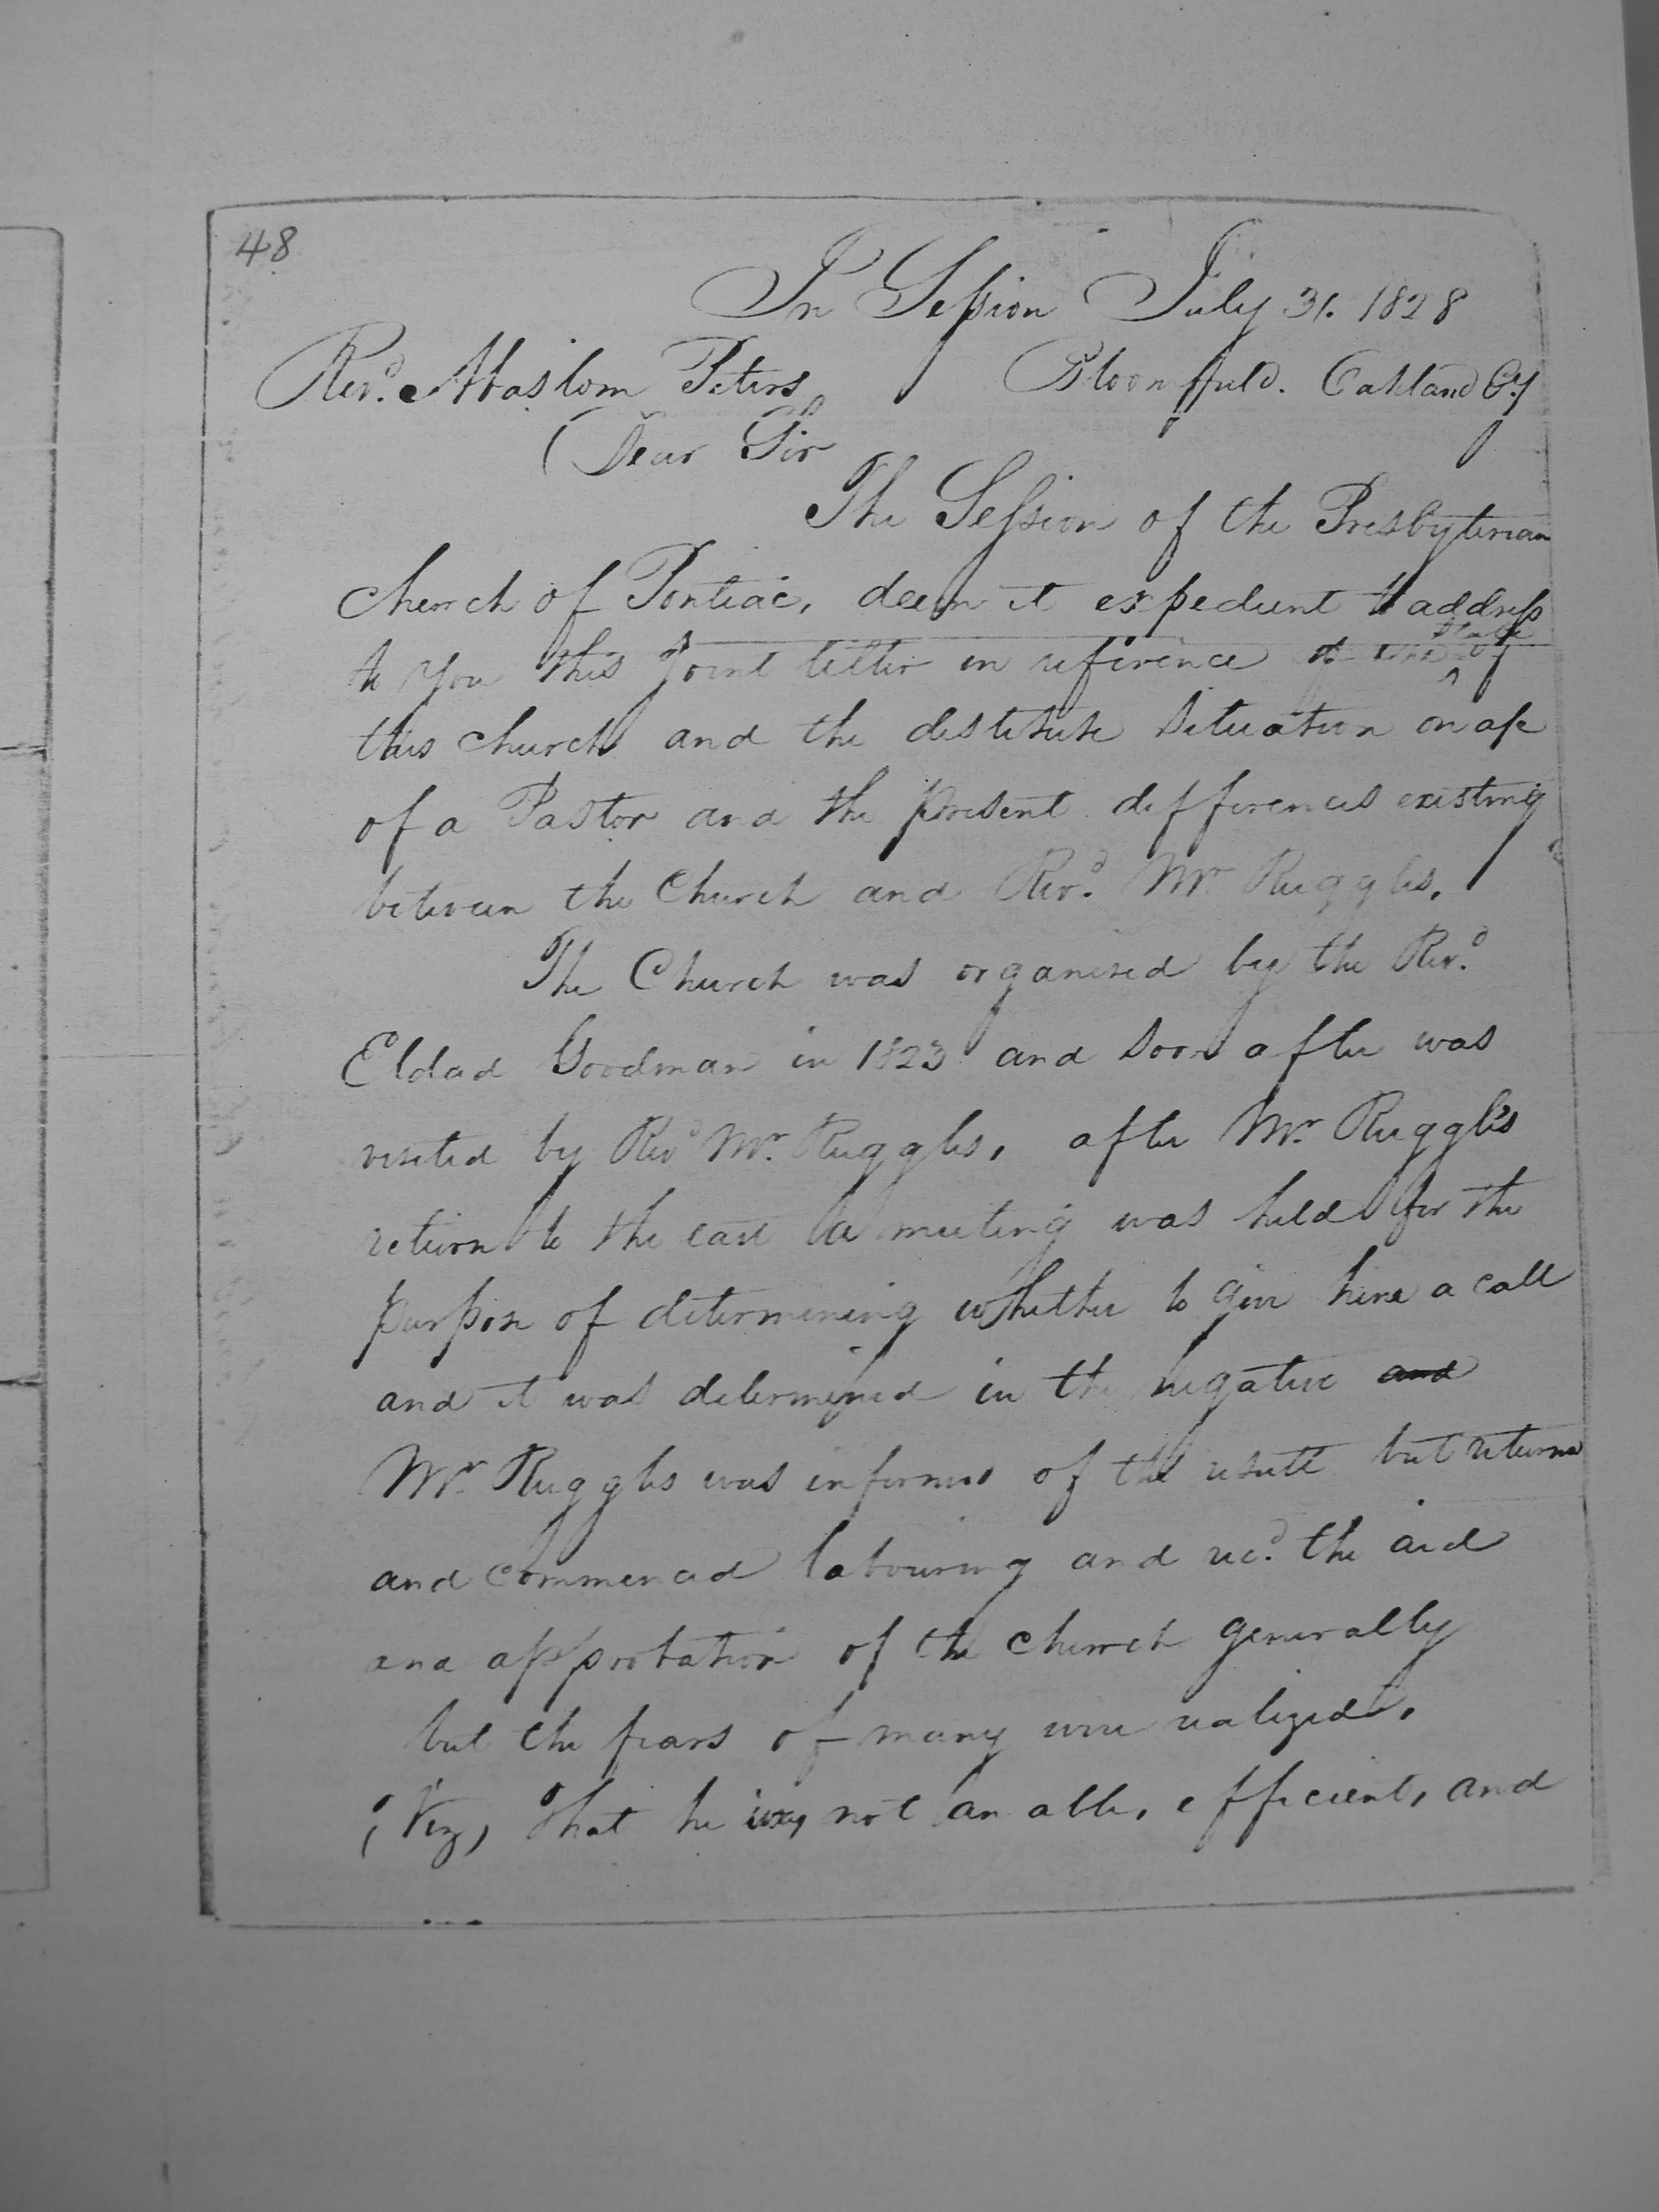 48
In Session July 31. 1828
Revd. Absalom Peters Bloomfield. Oakland Cy
Dear Sir
The Session of the Presbyterian
church of Pontiac, deem it expedient to address
to you this Joint letter in reference to the state of
this church and the destitute situation
of a Pastor and the present differences existing
between the Church and Revd. Mr. Ruggles.
The Church was organised by the Revd.
Eldad Goodman in 1823 and soon after was
visited by Revd Mr. Ruggles, after Mr. Ruggles
return to the east a meeting was held for the
purpose of determining whether to give him a call
and it was determined in the negative and
Mr. Ruggles was informed of the result but returned
and commenced labouring and recd. the aid
and approbation of the church generally
but the fears of many were realized.
(Viz) that he was not an able, efficient, and